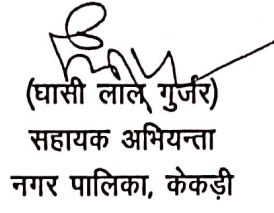 (घासी लाल गुर्जर)
सहायक अभियन्ता
नगर पालिका, केकड़ी